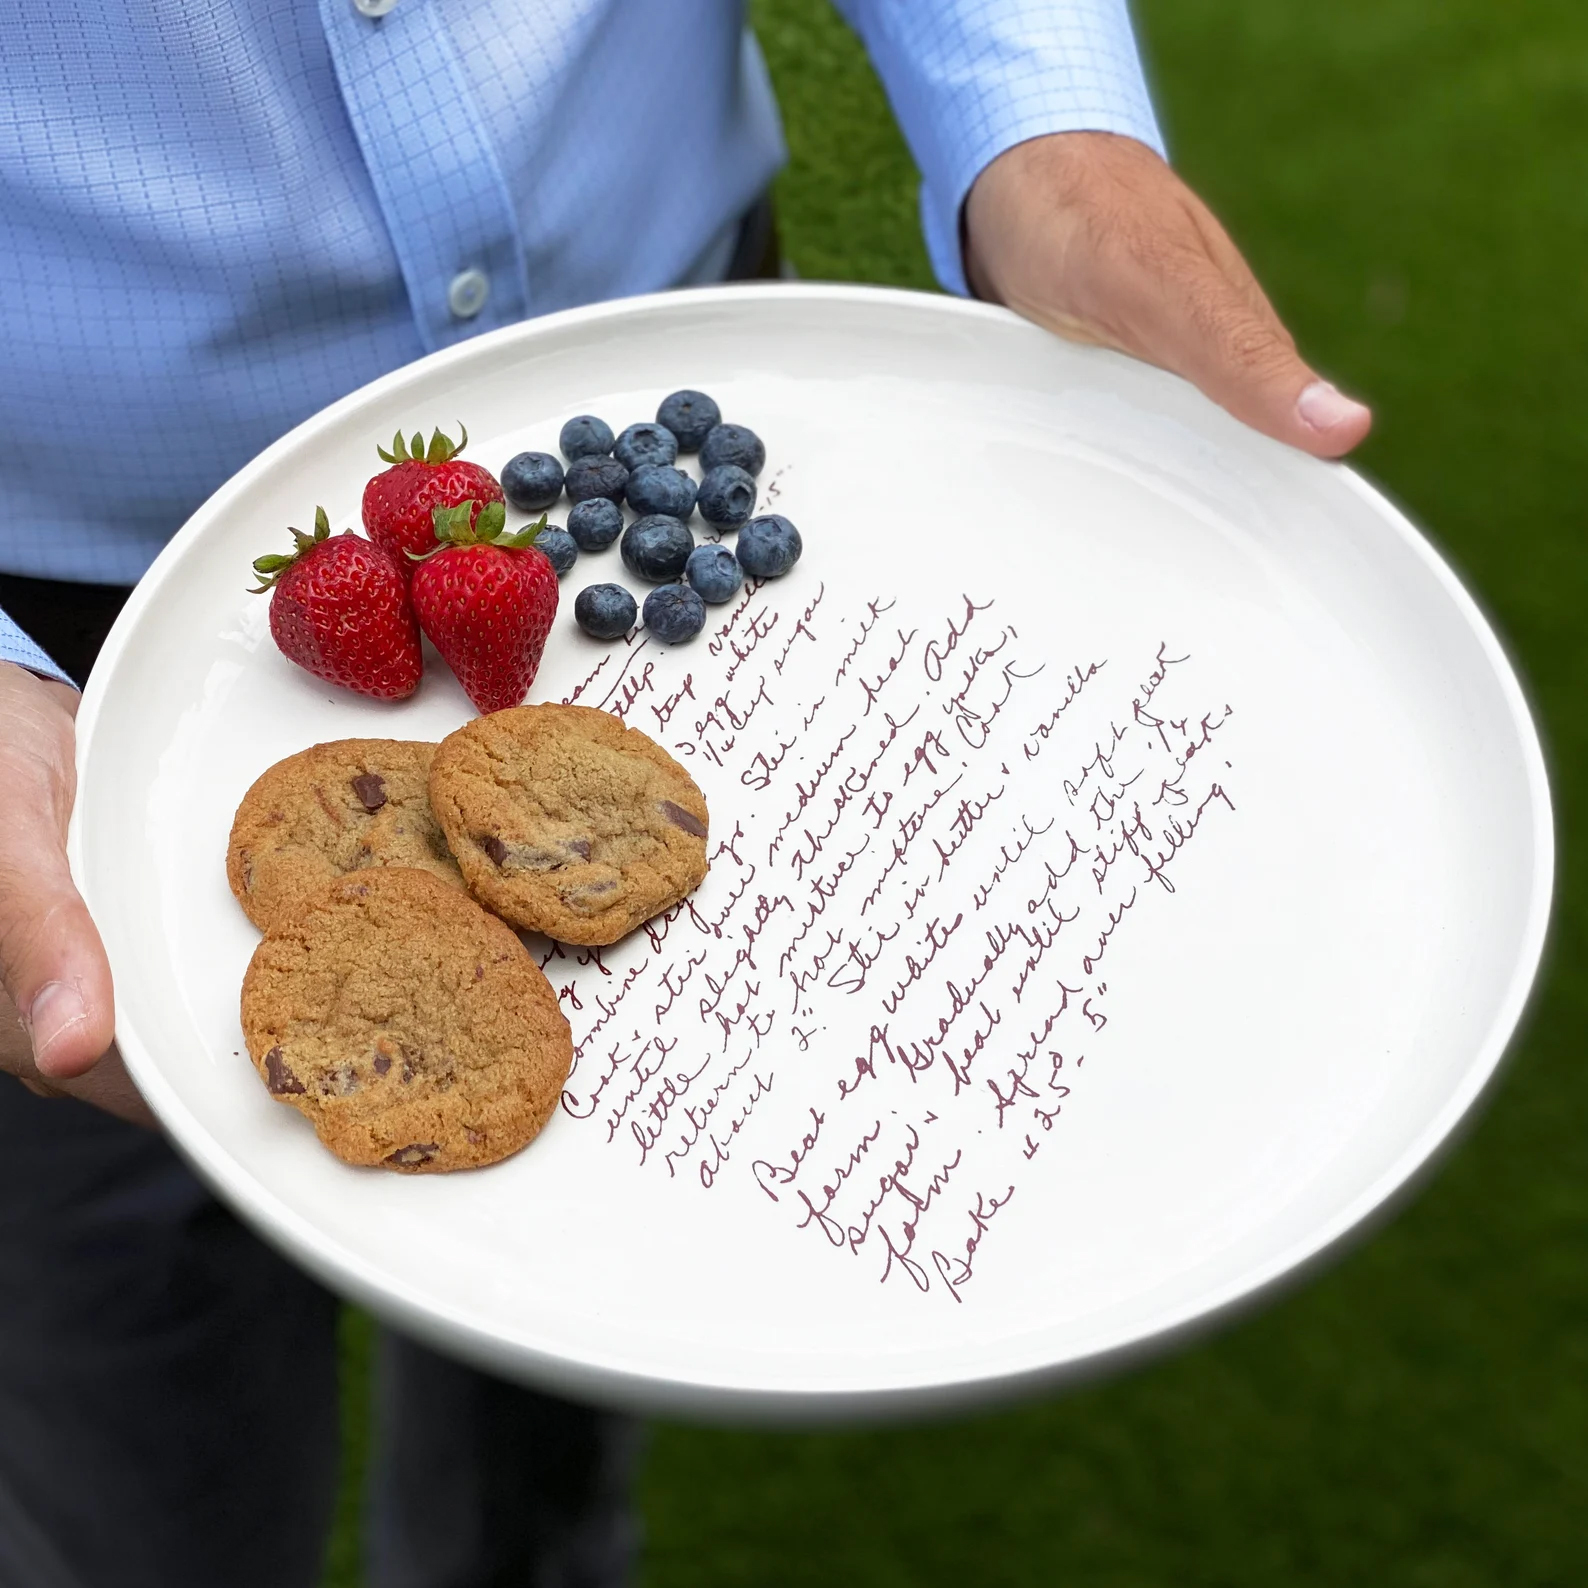 -15".
vanilla
tsp
3 egg white
1/4 cup sugar
Combine dry ings. Stir in milk
Cook & stir over medium heat
until slightly thickened. Add
little hot mixture to egg yolks,
return to hot mixture. Cook
about 2". Stir in butter & vanilla
Beat egg whites until soft peak
form. Gradually add the 1/4
sugar & beat until stiff peaks
form. Spread over filling.
Bake 425° - 5"